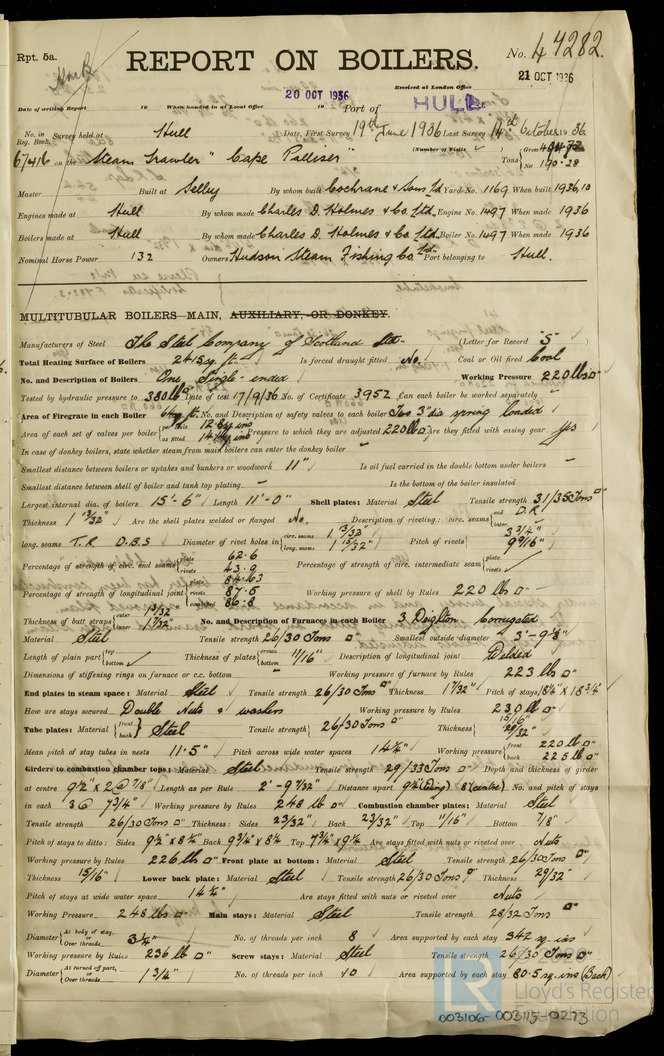 Rpt. 5a.
REPORT ON BOILERS.
No. 44282.
21 OCT 1936
Received at London Office
20 OCT 1936
Date of writing Report 19 When handed in at Local Office 19 Port of HULL
No. in Reg. Book. Survey held at Hull Date, First Survey 19th June 1936 Last Survey 14th October 1936
67416 on the Steam Trawler "Cape Palliser" (Number of Visits Tons Gross Net 190.28
Master Built at Selby By whom built Cochrane & Sons Ld Yard No. 1169 When built 1936,10
Engines made at Hull By whom made Charles D. Holmes & Co. Ltd. Engine No. 1497 When made 1936
Boilers made at Hull By whom made Charles D. Holmes & Co. Ltd. Boiler No. 1497 When made 1936
Nominal Horse Power 132 Owners Hudson Steam Fishing Co Ltd Port belonging to Hull.
MULTITUBULAR BOILERS—MAIN, AUXILIARY, OR DONKEY.
Manufacturers of Steel The Steel Company of Scotland Ltd. (Letter for Record "S")
Total Heating Surface of Boilers 2415 sq. ft. Is forced draught fitted No. Coal or Oil fired Coal
No. and Description of Boilers One Single-ended Working Pressure 220 lbs □"
Tested by hydraulic pressure to 380 lb □" Date of test 17/9/36 No. of Certificate 3952 Can each boiler be worked separately
Area of Firegrate in each Boiler No. and Description of safety valves to each boiler Two 3" dia spring loaded
Area of each set of valves per boiler per Rule as fitted Pressure to which they are adjusted 220 lb □" Are they fitted with easing gear Yes
In case of donkey boilers, state whether steam from main boilers can enter the donkey boiler –
Smallest distance between boilers or uptakes and bunkers or woodwork 11" Is oil fuel carried in the double bottom under boilers –
Smallest distance between shell of boiler and tank top plating – Is the bottom of the boiler insulated
Largest internal dia. of boilers 15'-6" Length 11'-0" Shell plates: Material Steel Tensile strength 31/35 Tons □"
Thickness 1 13/32" Are the shell plates welded or flanged No. Description of riveting: circ. seams end D.R. inter. –
long. seams T.R. D.B.S Diameter of rivet holes in circ. seams 1 13/32" long. seams 1 15/32" Pitch of rivets 3 3/4" 9 9/16"
Percentage of strength of circ. end seams plate 62.6 rivets 43.9 Percentage of strength of circ. intermediate seam plate rivets
Percentage of strength of longitudinal joint plate 84.63 rivets 87.5 combined 86.8 Working pressure of shell by Rules 220 lb □"
Thickness of butt straps outer 1 3/32" inner 1 7/32" No. and Description of Furnaces in each Boiler 3 Dighton Corrugated
Material Steel Tensile strength 26/30 Tons □" Smallest outside diameter 3'-9 1/8"
Length of plain part top bottom Thickness of plates crown bottom 11/16" Description of longitudinal joint Welded
Dimensions of stiffening rings on furnace or c.c. bottom – Working pressure of furnace by Rules 223 lb □"
End plates in steam space: Material Steel Tensile strength 26/30 Tons □" Thickness 1 7/32" Pitch of stays 18 1/4" × 18 3/4"
How are stays secured Double Nuts & washers Working pressure by Rules 230 lb □"
Tube plates: Material front back Steel Tensile strength 26/30 Tons □" Thickness 15/16" 29/32"
Mean pitch of stay tubes in nests 11.5" Pitch across wide water spaces 14 1/2" Working pressure front 220 lb □" back 225 lb □"
Girders to combustion chamber tops: Material Steel Tensile strength 29/33 Tons □" Depth and thickness of girder
at centre 9 1/2" × 2 @ 7/8" Length as per Rule 2'-9 7/32" Distance apart 9 1/2 (Wing) 8 (centre) No. and pitch of stays
in each 3 @ 7 3/4" Working pressure by Rules 248 lb □" Combustion chamber plates: Material Steel
Tensile strength 26/30 Tons □" Thickness: Sides 23/32" Back 23/32" Top 11/16" Bottom 7/8"
Pitch of stays to ditto: Sides 9 1/2" × 8 1/2" Back 9 3/4" × 8 1/4" Top 7 3/4" × 9 1/2 Are stays fitted with nuts or riveted over Nuts
Working pressure by Rules 226 lb □" Front plate at bottom: Material Steel Tensile strength 26/30 Tons □"
Thickness 15/16" Lower back plate: Material Steel Tensile strength 26/30 Tons □" Thickness 29/32"
Pitch of stays at wide water space 14 1/2" Are stays fitted with nuts or riveted over Nuts
Working Pressure 248 lbs □" Main stays: Material Steel Tensile strength 28/32 Tons □"
Diameter At body of stay, or Over threads 3 1/4" No. of threads per inch 8 Area supported by each stay 342 sq. ins
Working pressure by Rules 236 lb □" Screw stays: Material Steel Tensile strength 26/30 Tons □"
Diameter At turned off part, or Over threads 1 3/4" No. of threads per inch 10 Area supported by each stay 80.5 sq. ins (Back)
LR
© 2020
Lloyd's Register
Foundation
003106-003115-0273